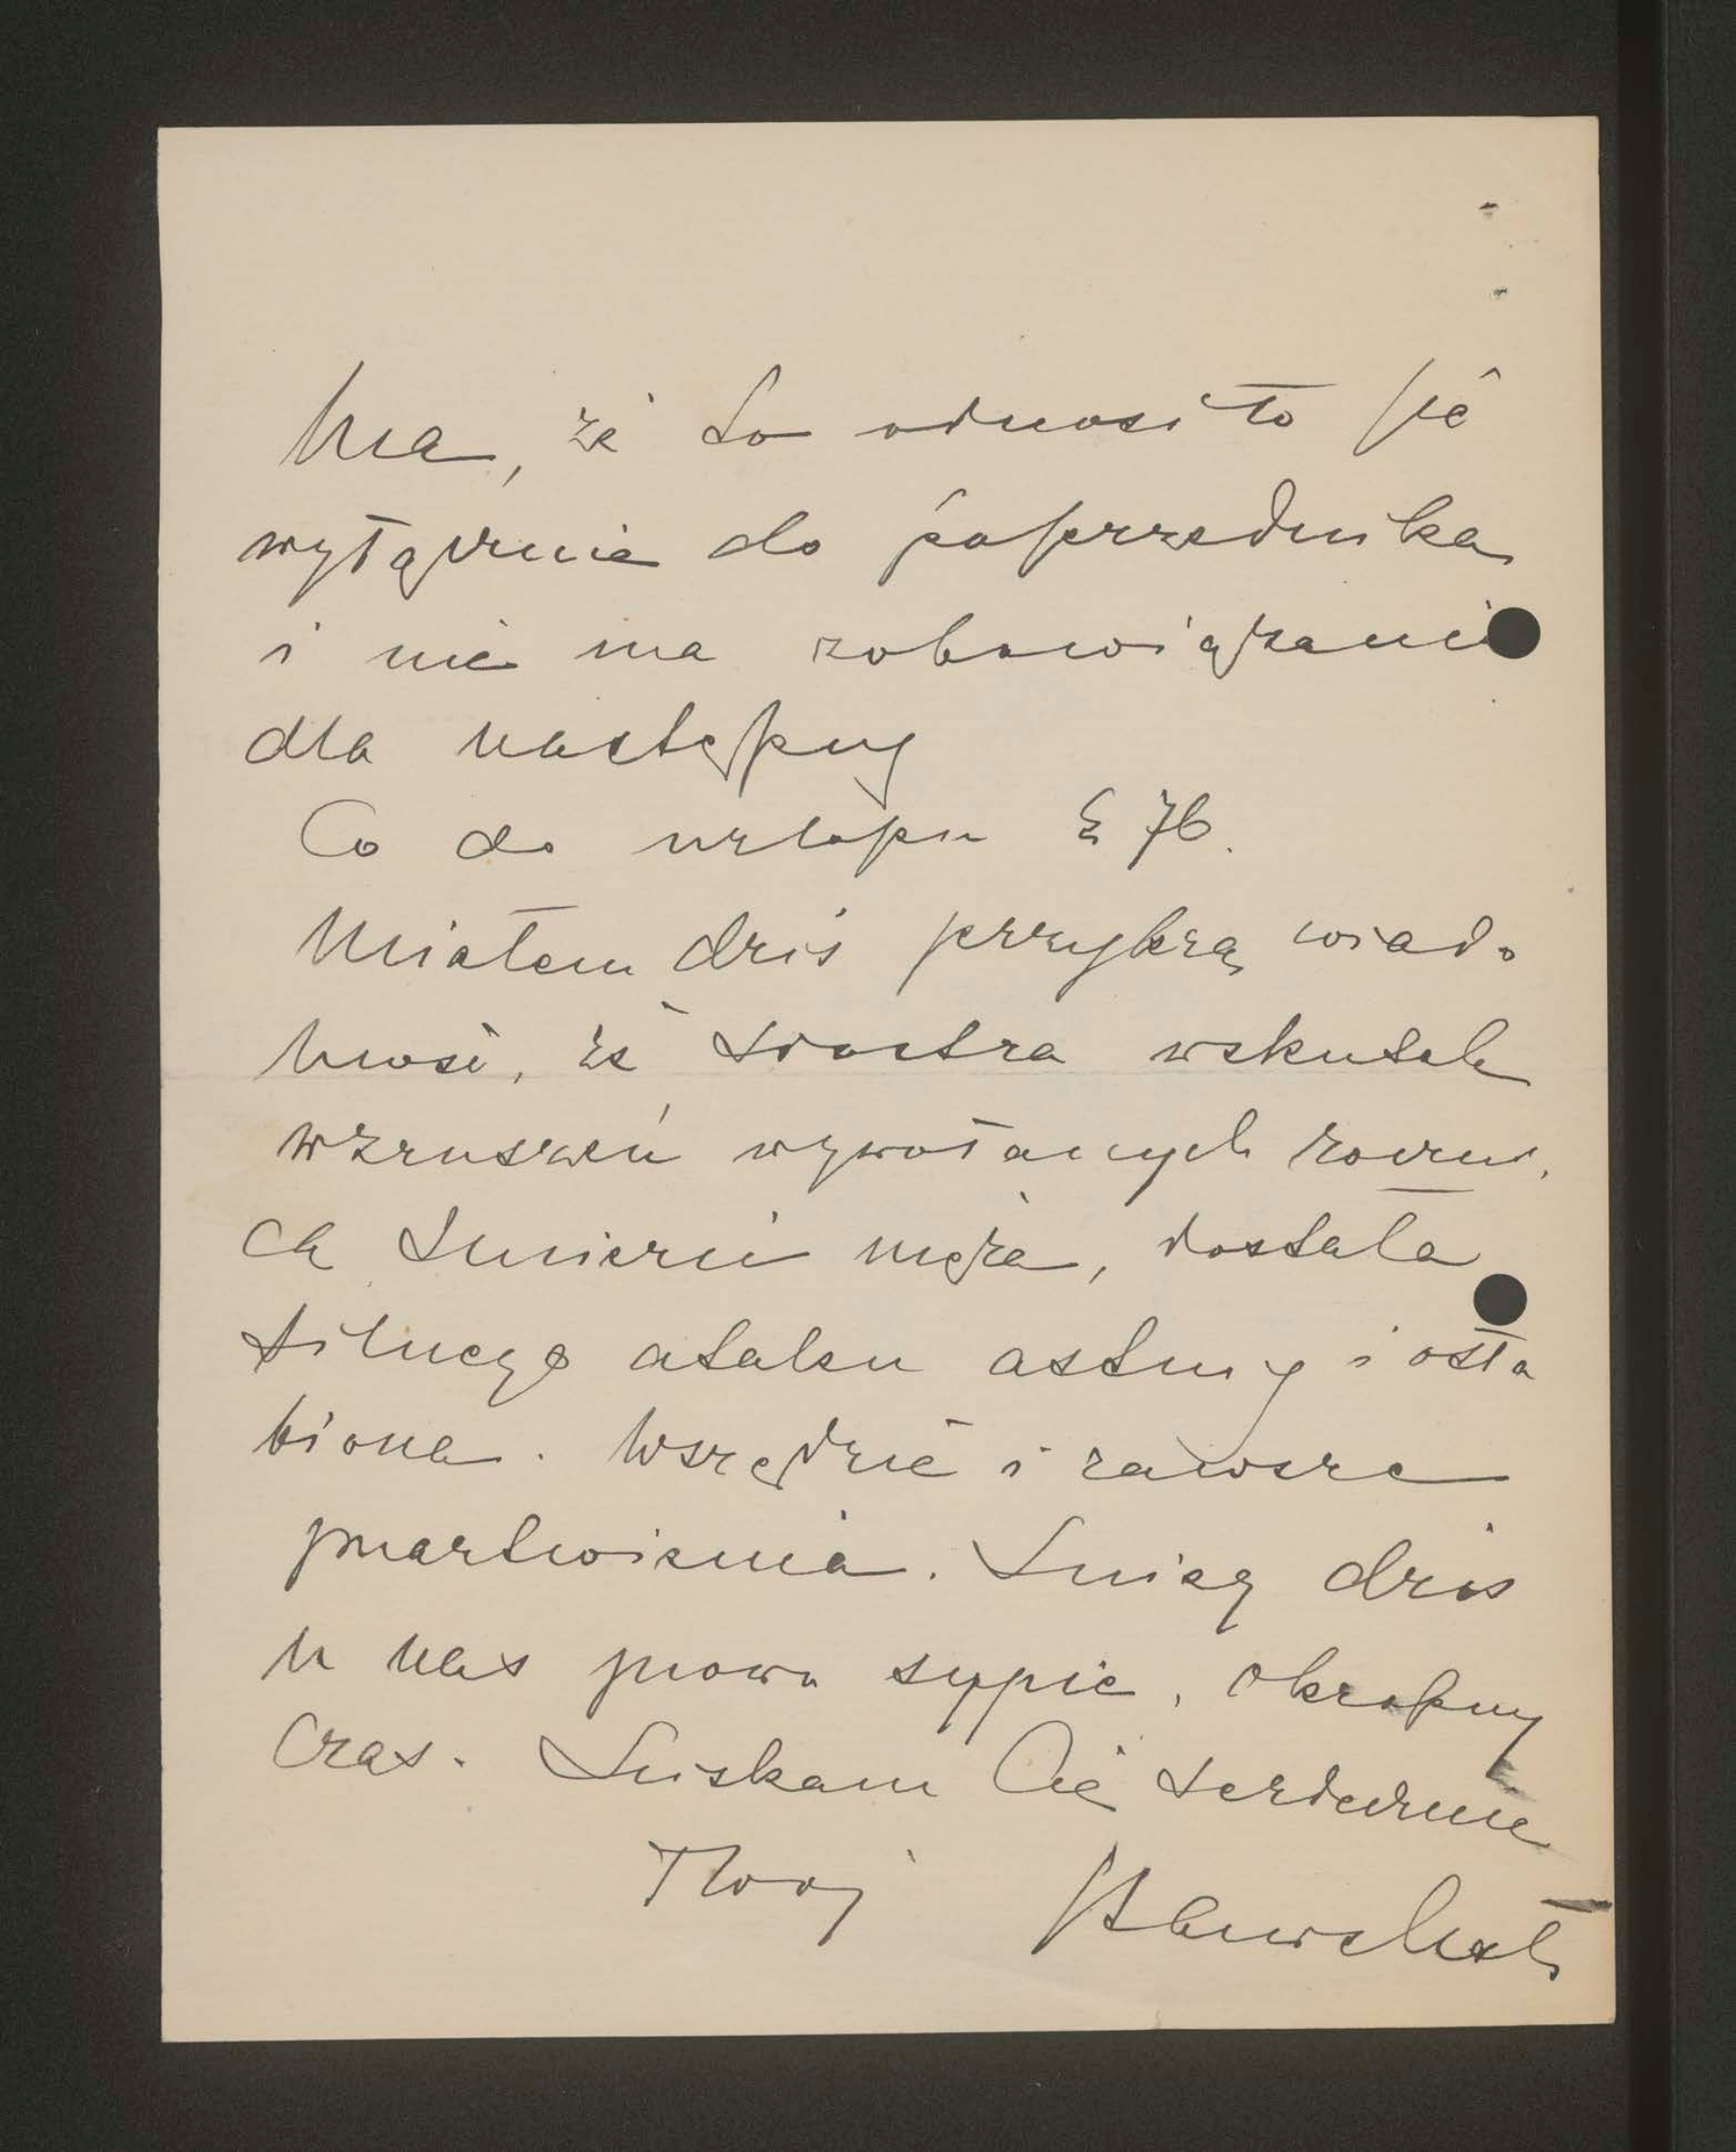 ma, że to odnosiło się
wyłącznie do poprzednika
i nie ma zobowiązani
dla następcy
Co do urlopu § 76.
Miałem dziś przykrą wiado
mość, że siostra wskutek
wzruszeń wywołanych roczni,
cą śmierci męża, dostała
silnego ataku astmy i osła
biona. Wszędzie i zawsze
zmartwienia. Śnieg dziś
u nas znowu sypie, okropny
czas. Ściskam Cię serdecznie
Twój